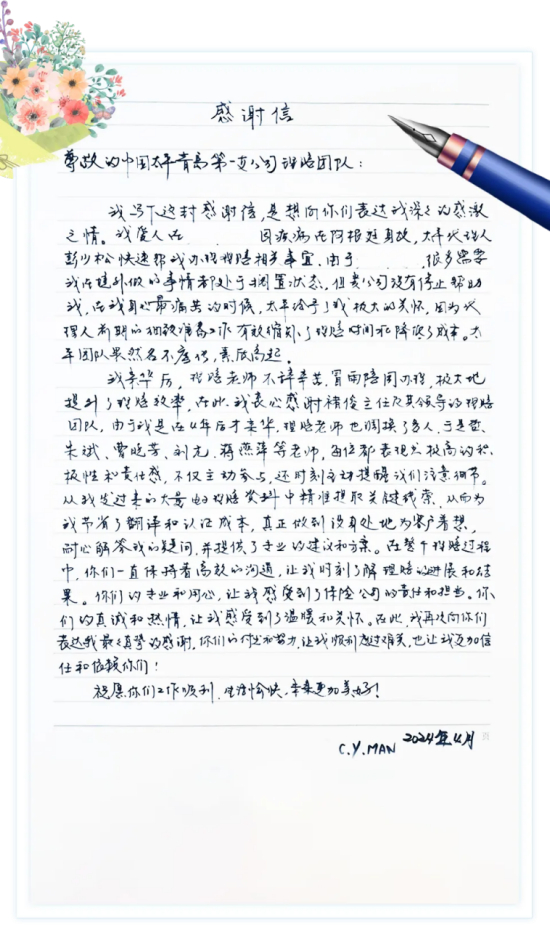 感谢信
尊敬的中国太平青岛第一支公司理赔团队：
我写下这封感谢信，是想向你们表达我深深的感激
之情。我爱人在 因疾病在阿根廷身故，太平代理人
彭少松快速帮我办理理赔相关事宜，由于 ，很多需要
我在境外做的事情都处于搁置状态，但贵公司没有停止帮助
我，在我身心最痛苦的时候，太平给予了我极大的关怀，因为代
理人前期的细致准备工作有效缩短了理赔时间和降低了成本。太
平团队果然名不虚传，素质高超。
我来华后，理赔老师不辞辛苦，冒雨陪同办理，极大地
提升了理赔效率，在此，我衷心感谢褚俊主任及其领导的理赔
团队，由于我是在4年后才来华，理赔老师也调换了多人，于是
朱斌、曹晓芳、刘尤、蒋燕萍等老师，每位都表现出极高的积
极性和责任感，不仅主动参与，还时刻主动提醒我们注意细节。
从我发过来的大量电子理赔资料中精准提取关键线索，从而为
我节省了翻译和认证成本，真正做到设身处地为客户着想，
耐心解答我的疑问，并提供了专业的建议和方案。在整个理赔过程
中，你们一直保持着高效的沟通，让我时刻了解理赔的进展和结
果。你们的专业和用心，让我感受到了保险公司的责任和担当。你
们的真诚和热情，让我感受到了温暖和关怀。在此，我再次向你们
表达我最真挚的感谢，你们的付出和努力，让我顺利度过难关，也让我更加信
任和依赖你们！
祝愿你们工作顺利，生活愉快，未来更加美好！
C.Y.MAN 2024年4月